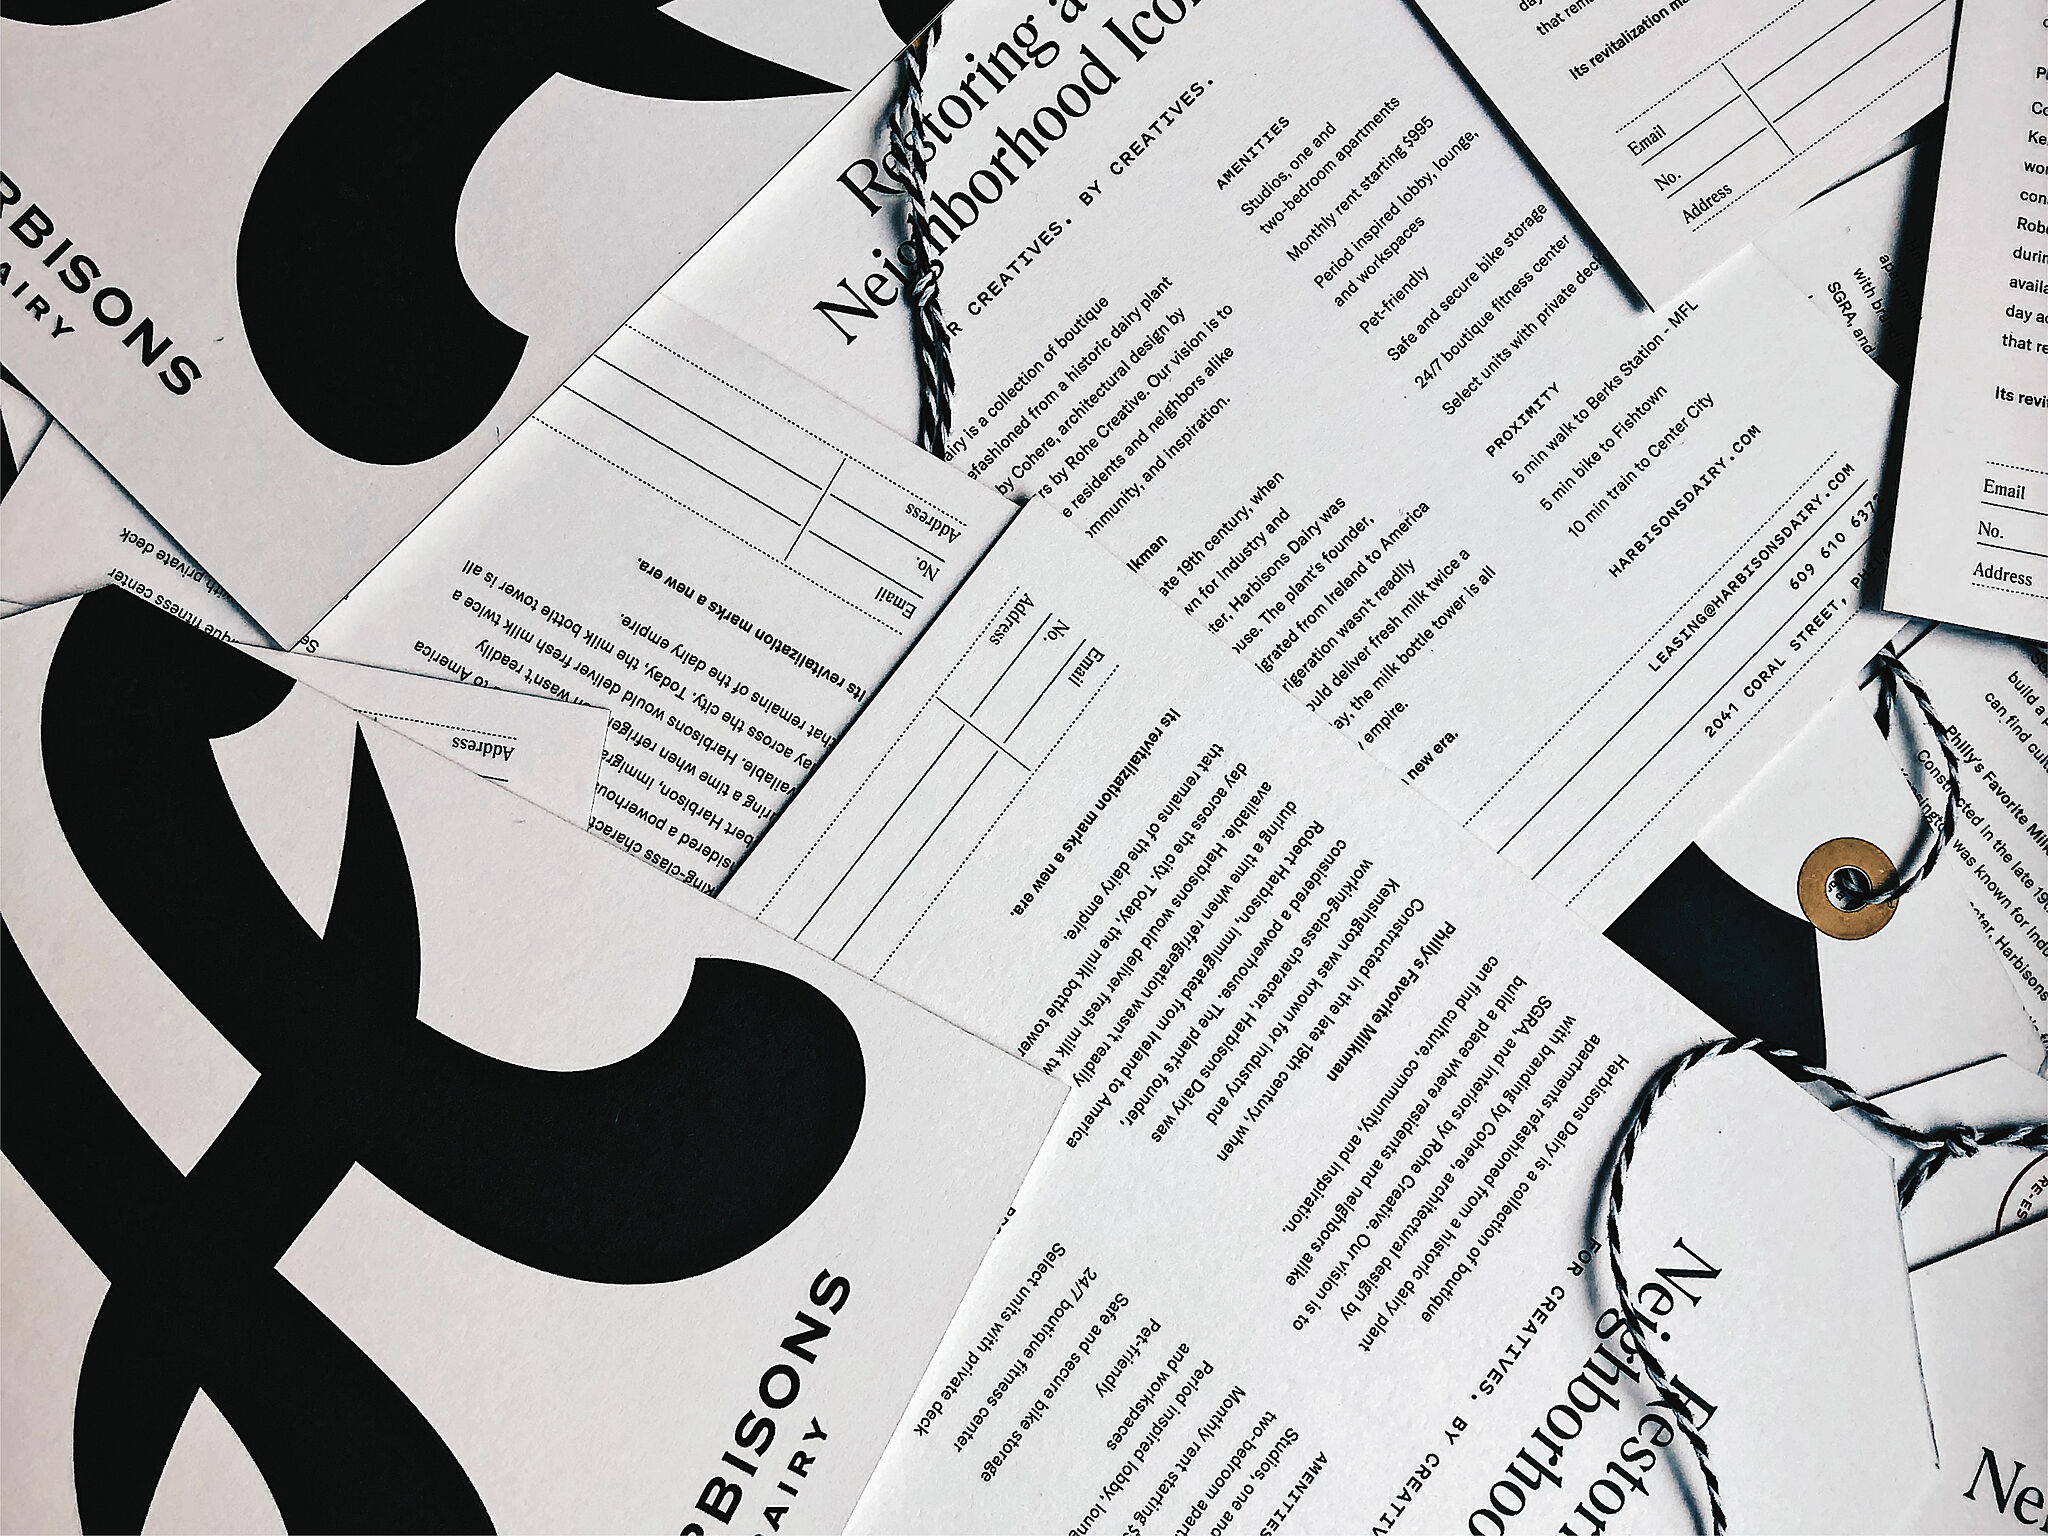 RBISONS
AIRY
Restoring a
Neighborhood Icon
R CREATIVES. BY CREATIVES.
airy is a collection of boutique
efashioned from a historic dairy plant
by Cohere, architectural design by
rs by Rohe Creative. Our vision is to
e residents and neighbors alike
mmunity, and inspiration.
lkman
ate 19th century, when
wn for industry and
ter, Harbisons Dairy was
ouse. The plant's founder,
igrated from Ireland to America
rigeration wasn't readily
ould deliver fresh milk twice a
ay, the milk bottle tower is all
empire.
new era.
AMENITIES
Studios, one and
two-bedroom apartments
Monthly rent starting $995
Period inspired lobby, lounge,
and workspaces
Pet-friendly
Safe and secure bike storage
24/7 boutique fitness center
Select units with private deck
PROXIMITY
5 min walk to Berks Station - MFL
5 min bike to Fishtown
10 min train to Center City
HARBISONSDAIRY.COM
LEASING@HARBISONSDAIRY.COM
609 610 637
2041 CORAL STREET,
day
that rem
Its revitalization ma
Email
No.
Address
with bra
SGRA, and
Ke
wor
con
Robe
durin
availa
day ac
that re
Its revi
Email
No.
Address
ith private deck
que fitness center
Se
to America
wasn't readily
Harbisons would deliver fresh milk twice a
ay across the city. Today, the milk bottle tower is all
that remains of the dairy empire.
Its revitalization marks a new era.
Email
No.
Address
king-class charact
sidered a powerhou
bert Harbison, immigra
ring a time when refrige
vailable.
Address
Restor
Neighborhoo
FOR CREATIVES. BY CREATIV
Harbisons Dairy is a collection of boutique
apartments refashioned from a historic dairy plant
with branding by Cohere, architectural design by
SGRA, and interiors by Rohe Creative. Our vision is to
build a place where residents and neighbors alike
can find culture, community, and inspiration.
Philly's Favorite Milkman
Constructed in the late 19th century, when
Kensington was known for industry and
working-class character, Harbisons Dairy was
considered a powerhouse. The plant's founder,
Robert Harbison, immigrated from Ireland to America
during a time when refrigeration wasn't readily
available. Harbisons would deliver fresh milk tw
day across the city. Today, the milk bottle tower
that remains of the dairy empire.
Its revitalization marks a new era.
Email
No.
Address
AMENITIES
Studios, one and
two-bedroom apart
Monthly rent starting $
Period inspired lobby, loun
and workspaces
Pet-friendly
Safe and secure bike storage
24/7 boutique fitness center
Select units with private deck
build a p
can find cultu
Philly's Favorite Mil
Constructed in the late 19
sington was known for indu
cter, Harbisons
RE-ES
Nei
RBISONS
AIRY